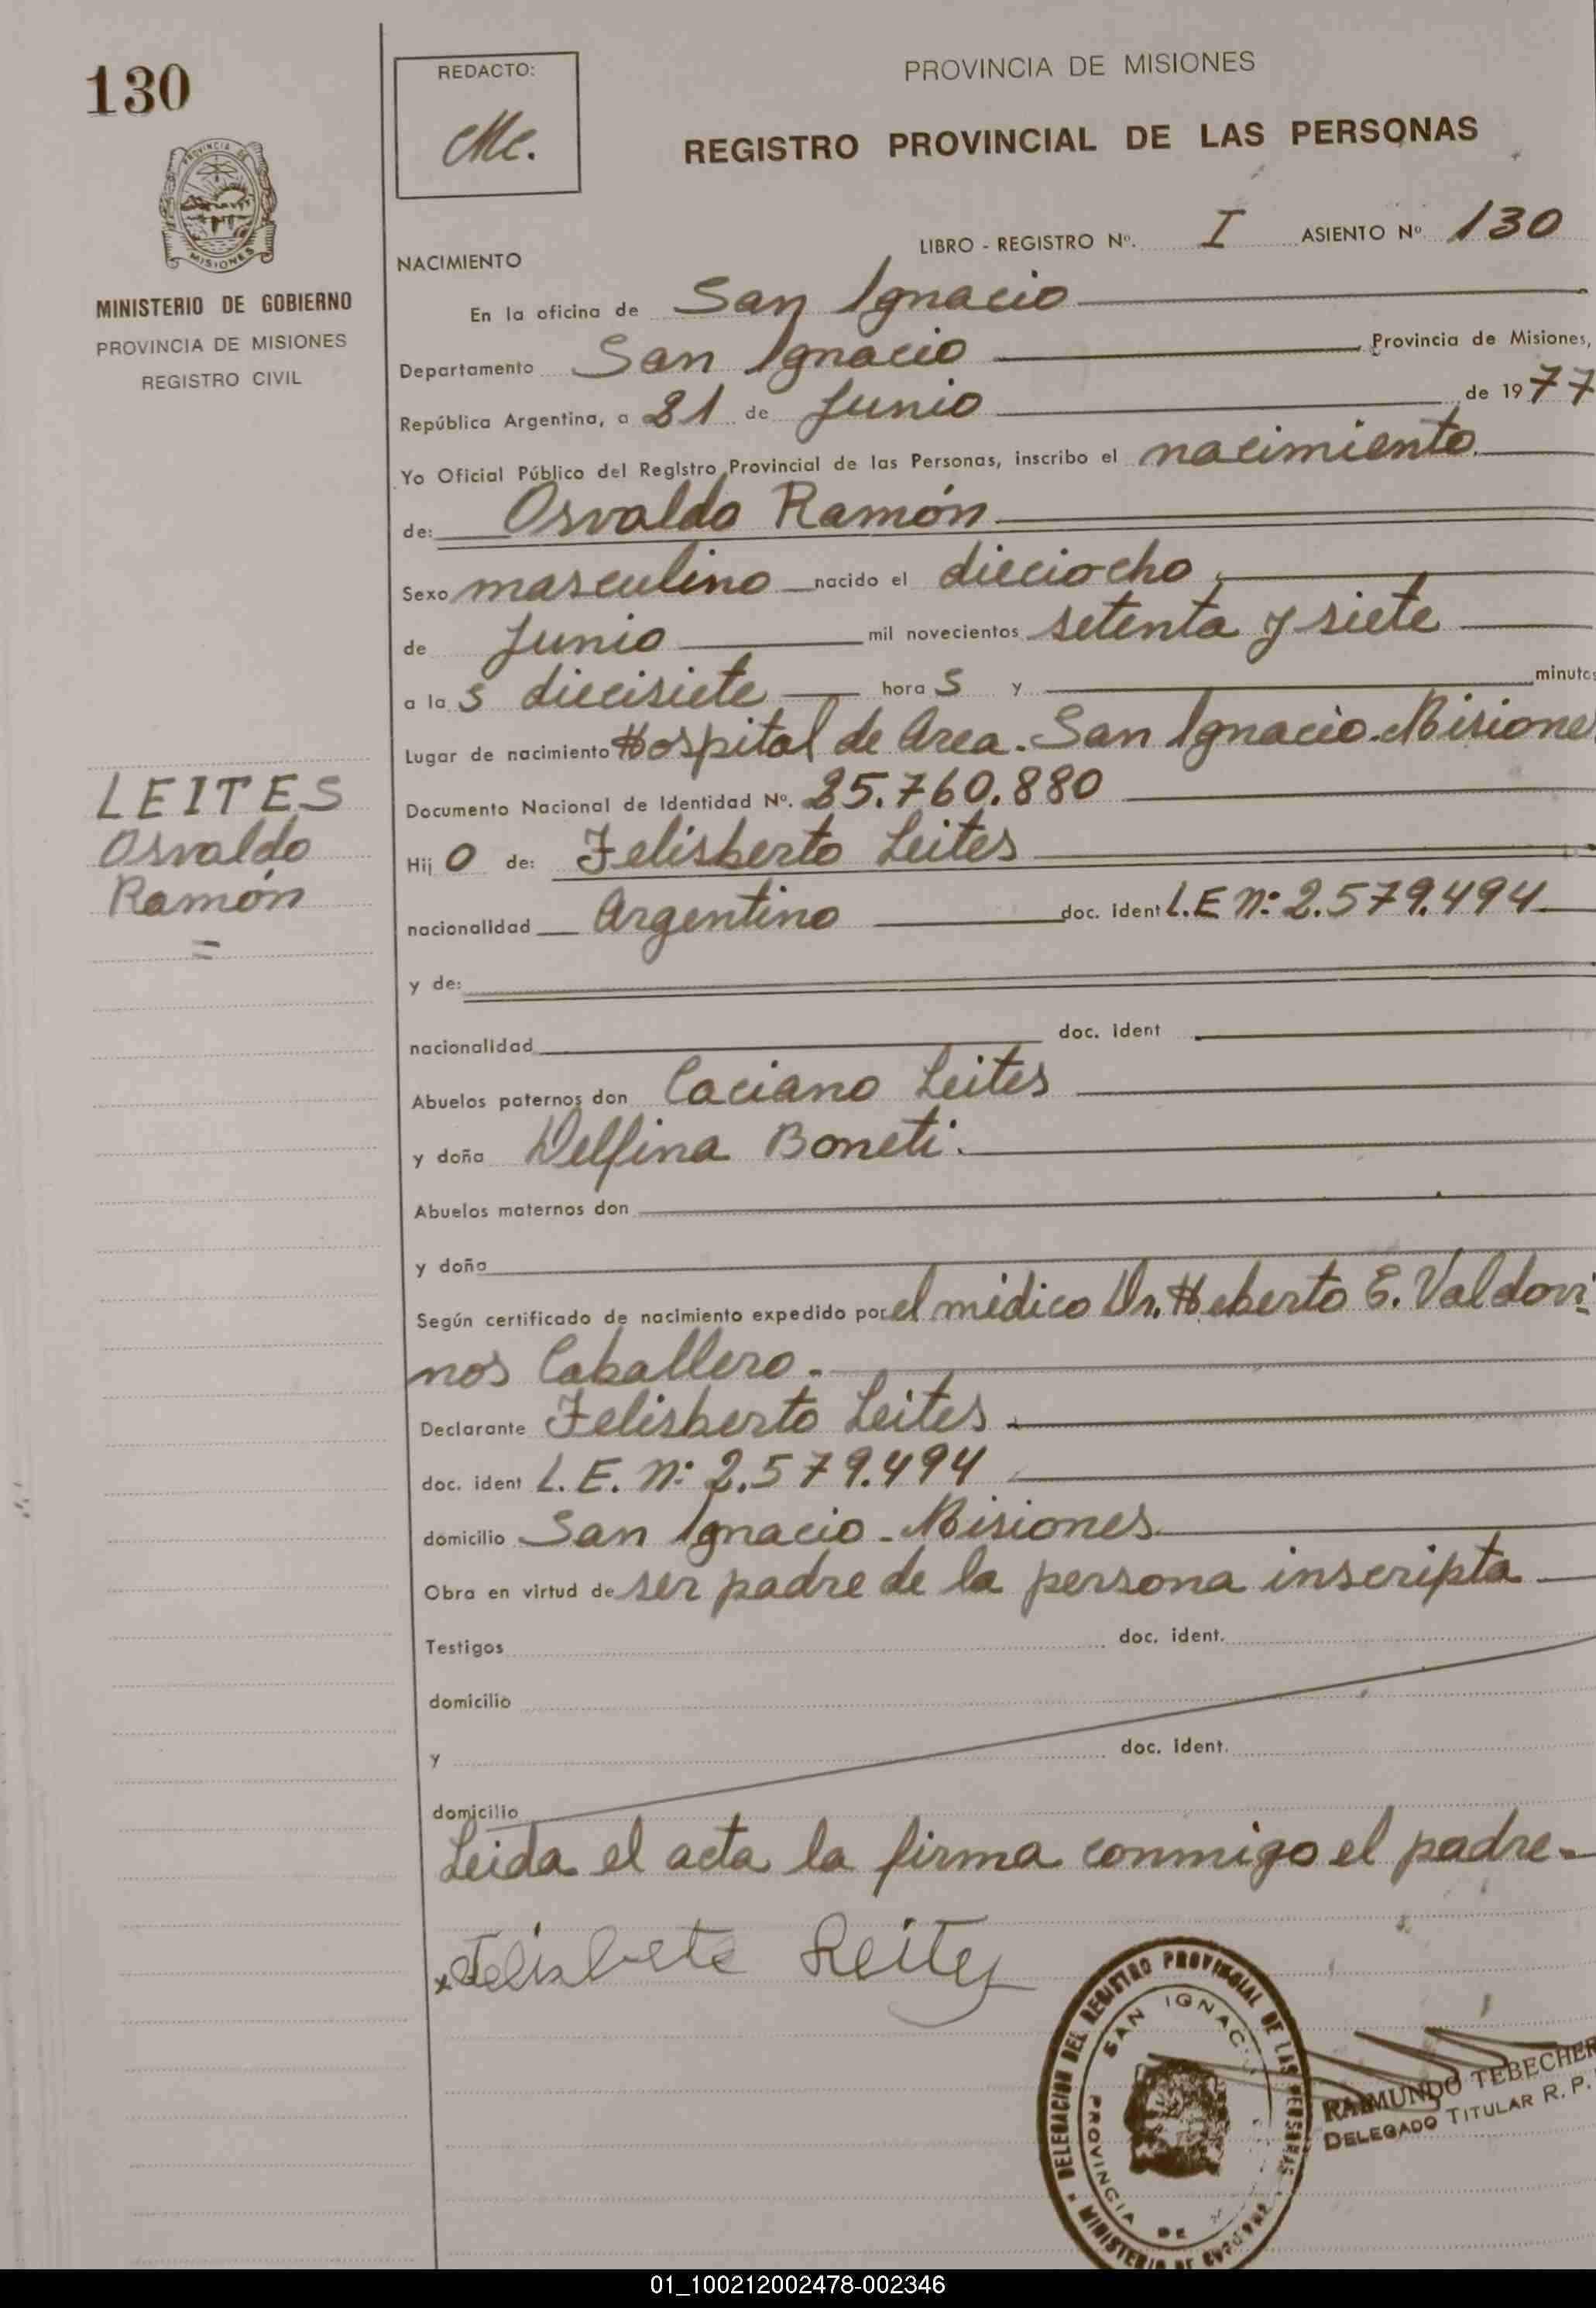 130
REDACTO:
Mc.
PROVINCIA DE MISIONES
REGISTRO PROVINCIAL DE LAS PERSONAS
PROVINCIA DE
MISIONES
MINISTERIO DE GOBIERNO
PROVINCIA DE MISIONES
REGISTRO CIVIL
LIBRO - REGISTRO Nº. I ASIENTO Nº. 130
NACIMIENTO
En la oficina de San Ignacio
Departamento San Ignacio Provincia de Misiones,
República Argentina, a 21 de Junio de 1977
Yo Oficial Público del Registro Provincial de las Personas, inscribo el nacimiento
de: Osvaldo Ramón
Sexo masculino nacido el dieciocho
de Junio mil novecientos setenta y siete
a las diecisiete horas y minutos
Lugar de nacimiento Hospital de Area. San Ignacio. Misione
Documento Nacional de Identidad Nº. 25.760.880
LEITES
Osvaldo
Ramón
=
Hijo de: Felisberto Leites
nacionalidad Argentino doc. ident L.E Nº 2.579.494
y de:
nacionalidad doc. ident
Abuelos paternos don Caciano Leites
y doña Delfina Boneti.
Abuelos maternos don
y doña
Según certificado de nacimiento expedido por el médico Dr. Heberto E. Valdovi
nos Caballero.
Declarante Felisberto Leites
doc. ident L. E. Nº 2.579.494
domicilio San Ignacio - Misiones
Obra en virtud de ser padre de la persona inscripta
Testigos doc. ident.
domicilio
y doc. ident.
domicilio
Leida el acta la firma conmigo el padre.
x Felisbete Leites
DELEGACION DEL REGISTRO PROVINCIAL DE LAS PERSONAS
SAN IGNACIO
PROVINCIA DE
MINISTERIO DE GOBIERNO
RAIMUNDO TEBECHER
DELEGADO TITULAR R. P.
01_100212002478-002346